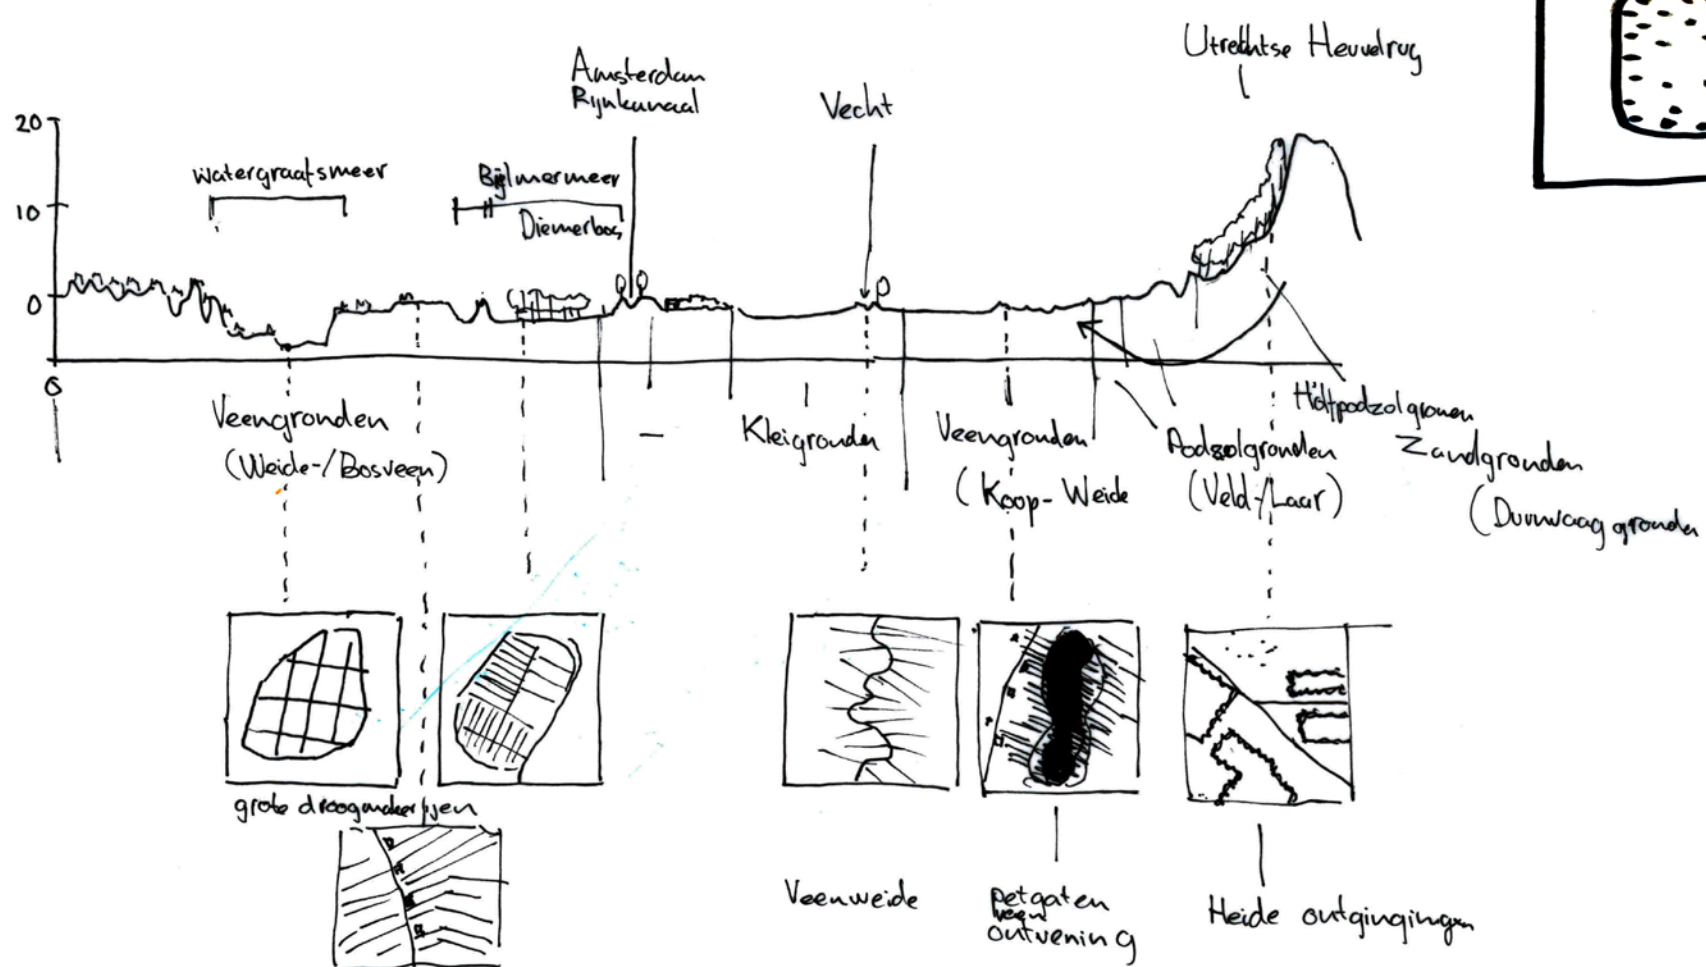 Utrechtse Heuvelrug
Amsterdam
Rijnkanaal
Vecht
20
Watergraafsmeer
Bijlmermeer
10
Diemerbos
0
0
Veengronden
(Weide-/Bosveen)
-
Kleigronden
Veengronden
(Koop-Weide
Podzolgronden
(Veld-/Laar)
Zandgronden
grote droogmakerijen
Veenweide
petgaten
veen
ontvening
Heide